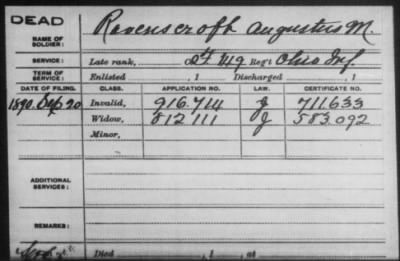 DEAD
NAME OF SOLDIER: Ravenscroft Augustus M.
SERVICE: Late rank, 149 Reg't Ohio Inf.
TERM OF SERVICE: Enlisted , 1 Discharged , 1
DATE OF FILING. CLASS. APPLICATION NO. LAW. CERTIFICATE NO.
1890. Sep 20 Invalid, 916.714 J 711.633
Widow, 812 111 J 583.092
Minor,
ADDITIONAL SERVICES:
REMARKS:
Died , 1 , at